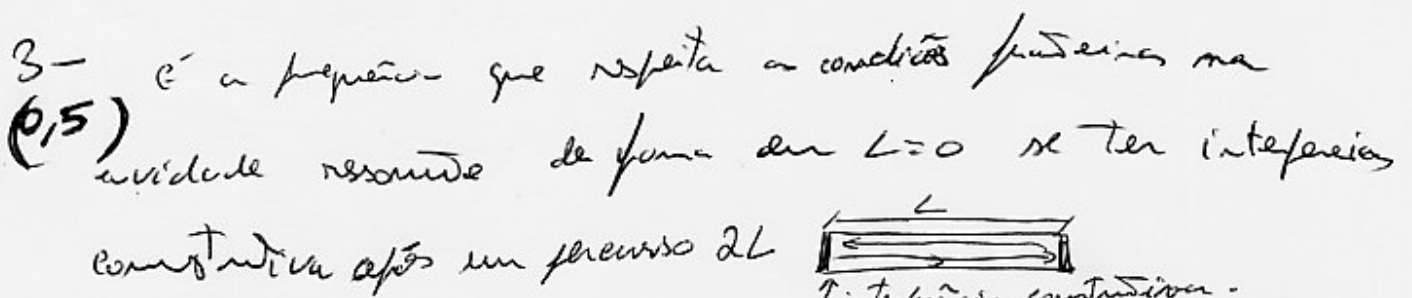 3- é a frequência que respeita as condições fronteiras na
(0,5) cavidade ressonante de forma a em L=0 se ter interferência
construtiva após um percurso 2L
L
interferência construtiva.